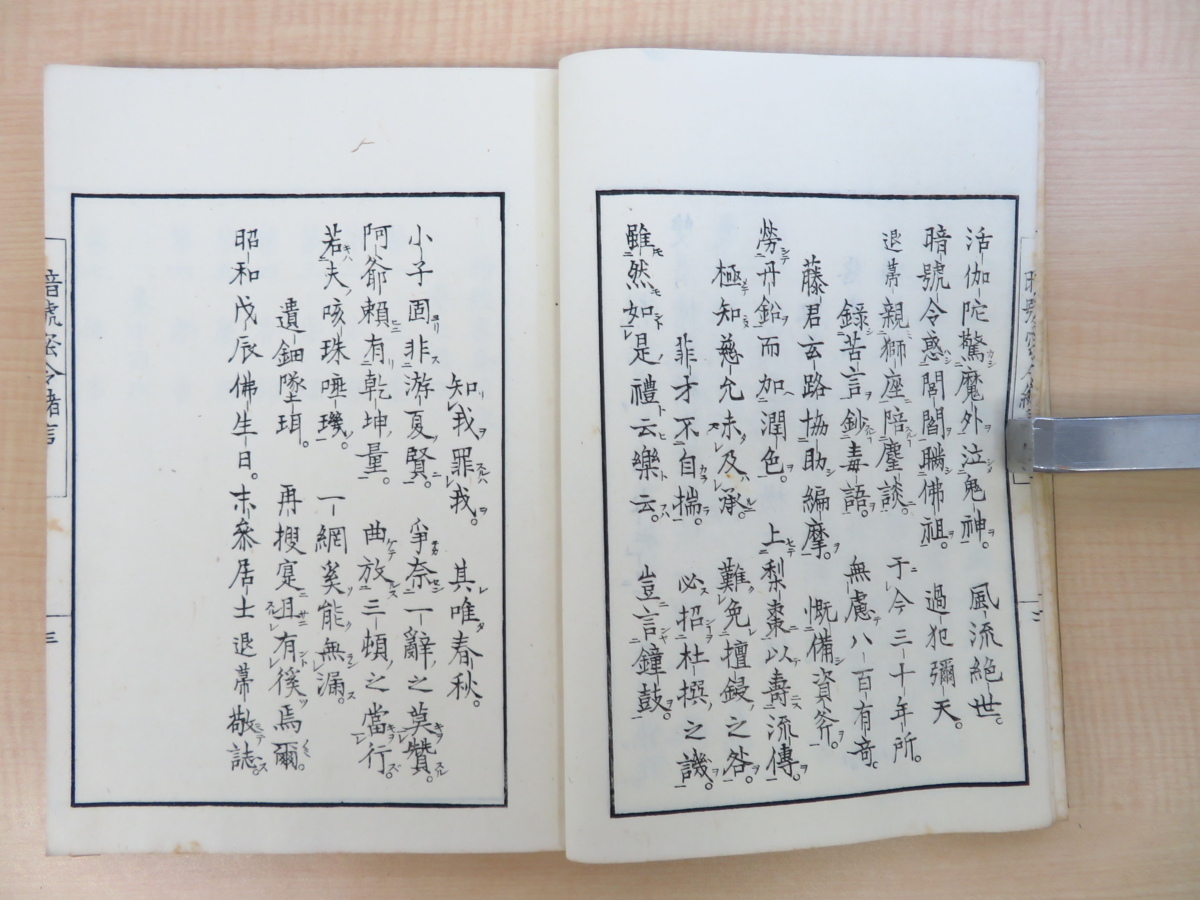 活伽陀驚魔外泣鬼神。風流絶世。
暗號令惑閻閻瞞佛祖。過犯彌天。
退蒂親獅座陪麈談。于今三十年所。
錄苦言鈔毒語。無慮八百有奇。
藤君玄路協助編摩。慨備資斧。
勞丹鉛而加潤色。上梨棗以壽流傳。
極知慈允未及承。難免擅鋟之咎。
菲才不自揣。必招杜撰之譏。
雖然如是禮云樂云。豈言鐘鼓。
知我罪我。其唯春秋。
小子固非游夏賢。爭奈一辭之莫贊。
阿爺賴有乾坤量。曲放三頓之當行。
若夫咳珠唾璣。一網奚能無漏。
遺鈿墜珥。再搜寔且有徯焉爾。
昭和戊辰佛生日。末參居士退蒂敬誌。